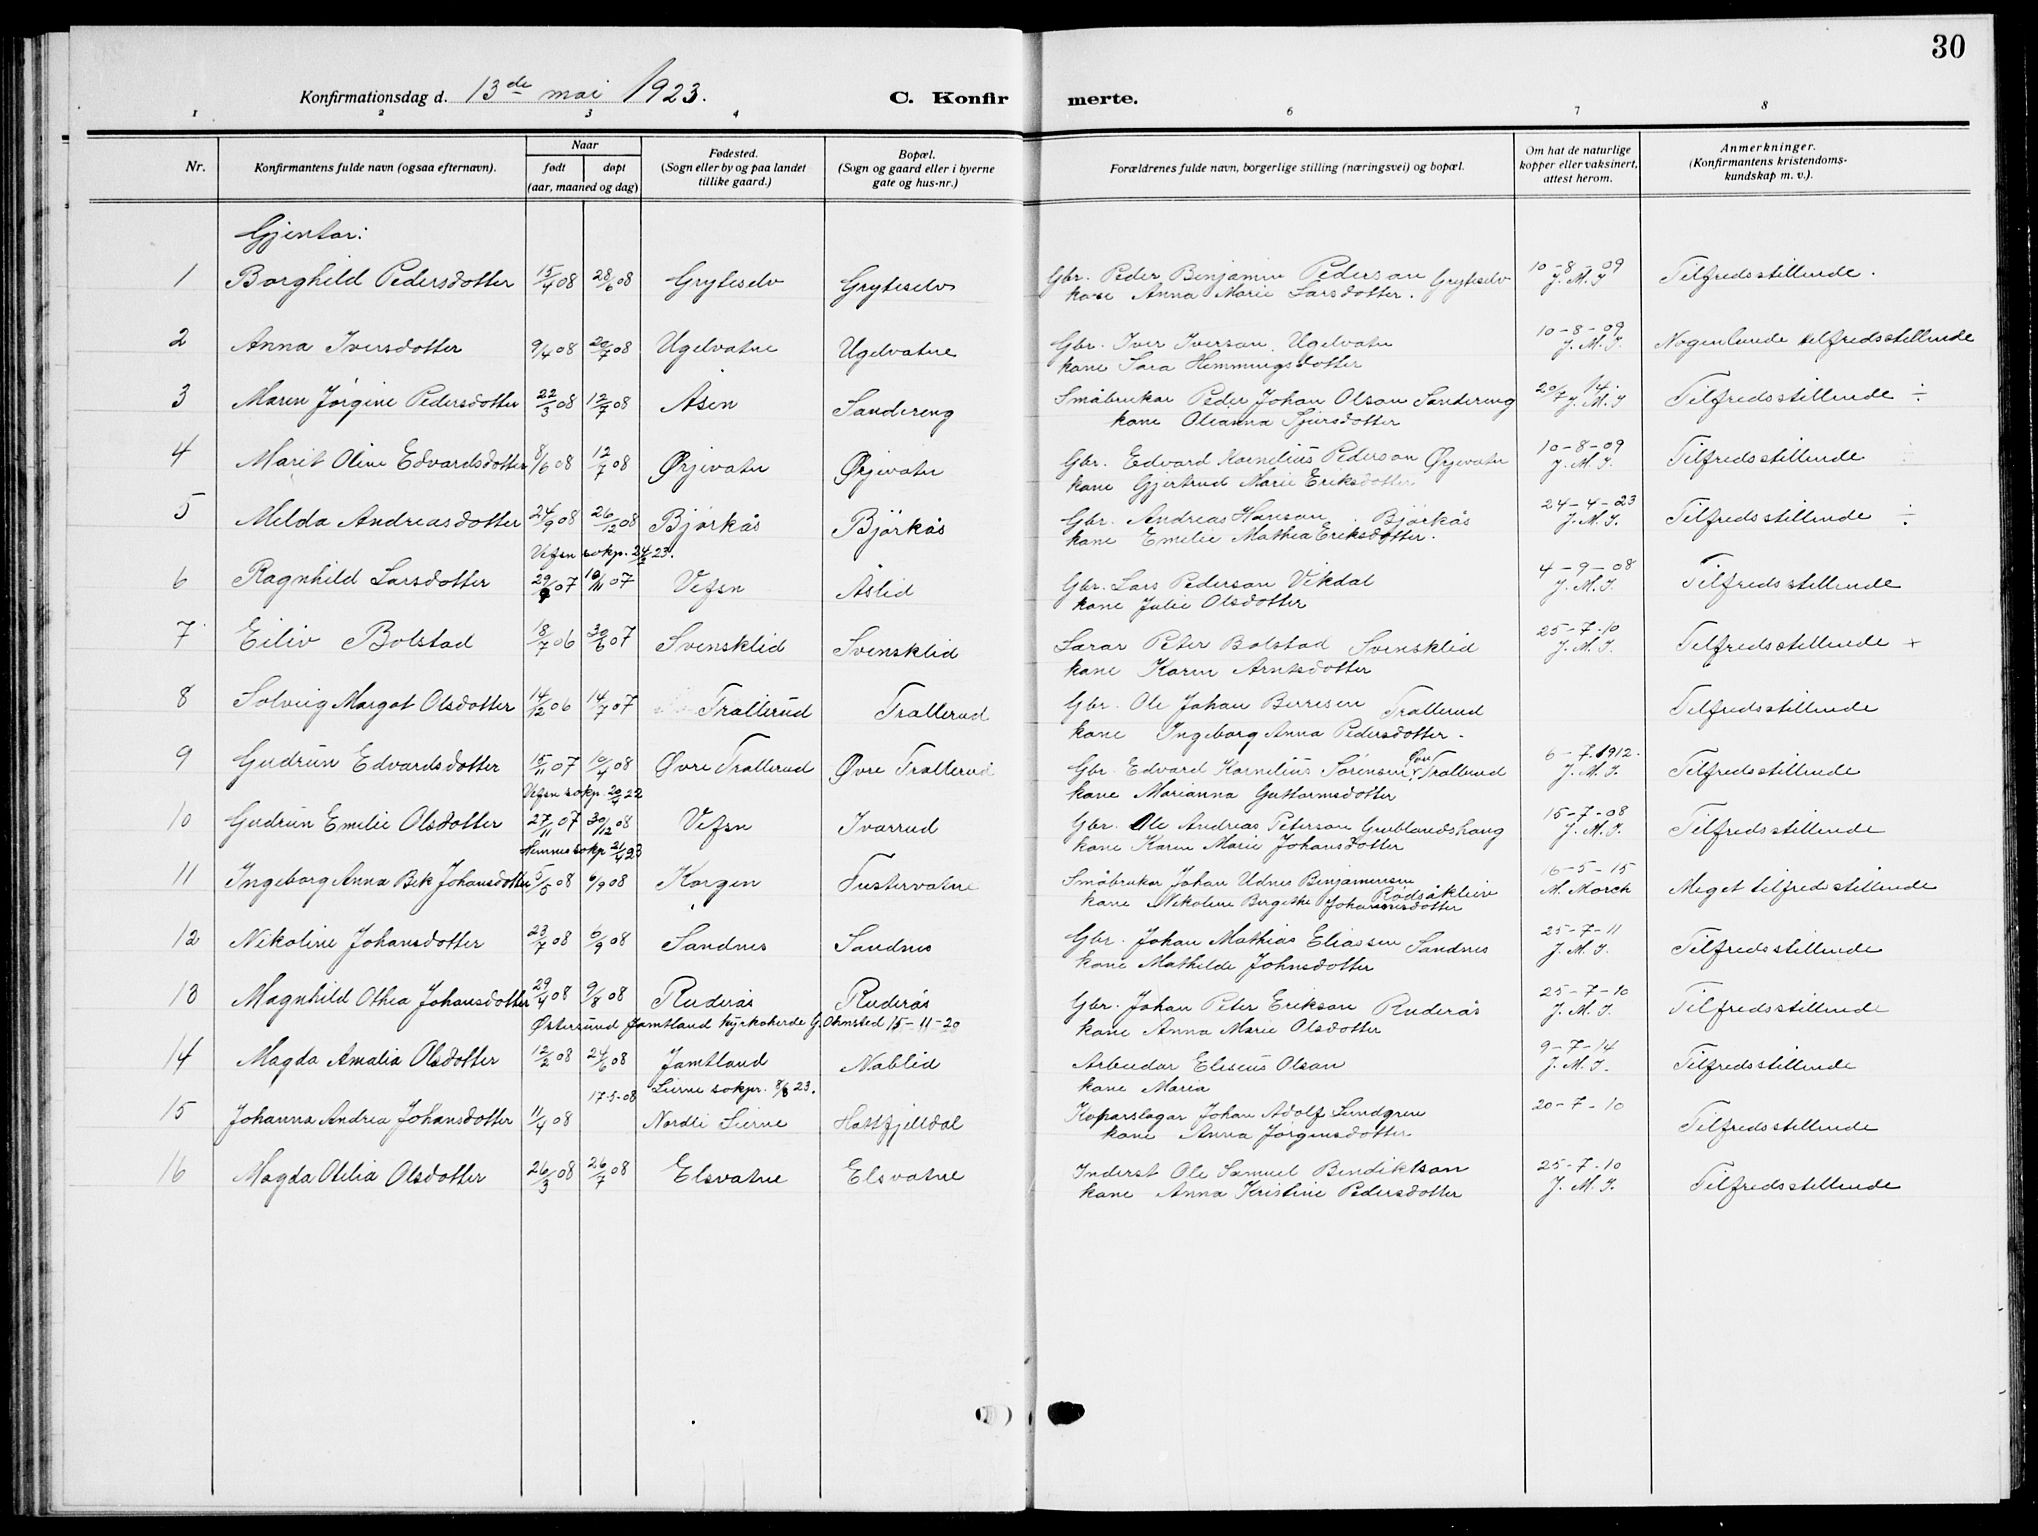 30
Konfirmationsdag d. 13de mai 1923. C. Konfir merte.
1 2 3 4 6 7 8
Nr. Konfirmantens fulde navn (ogsaa efternavn). Naar født døpt (aar, maaned og dag) Fødested. (Sogn eller by og paa landet tillike gaard.) Bopæl. (Sogn og gaard eller i byerne gate og hus-nr.) Forældrenes fulde navn, borgerlige stilling (næringsvei) og bopæl. Om hat de naturlige kopper eller vaksinert, attest herom. Anmerkninger. (Konfirmantens kristendoms-kundskap m. v.).
Gjentar:
1 Borghild Pedersdotter 15/4 08 28/6 08 Gryteselv Gryteselv Gbr. Peder Benjamin Pederson Gryteselv 10-8-09 Tilfredsstillende.
kone Anna Marie Larsdotter. J. M. I
2 Anna Iversdotter 9/4 08 20/7 08 Ugelvatne Ugelvatne Gbr. Iver Iverson Ugelvatn 10-8-09 Nogenlunde tilfredsstillende
kone Sara Hemmingsdotter J. M. I.
3 Maren Jørgine Pedersdotter 22/3 08 12/7 08 Åsen Sandereng Småbrukar Peder Johan Olson Sandereng 20/7 14. Tilfredsstillende ÷
kone Oleanna Sjursdotter J. M. I
4 Marit Oline Edvardsdotter 8/6 08 12/7 08 Ørjevatn Ørjevatn Gbr. Edvard Kornelius Pederson Ørjevatn 10-8-09 Tilfredsstillende ÷
kone Gjertrud Marie Eriksdotter J. M. I.
5 Melda Andreasdotter 24/9 08 26/12 08 Bjørkås Björkås Gbr. Andreas Hanson Bjørkås 24-4-23 Tilfredsstillende ÷
kone Emelie Mathea Eriksdotter. J. M. I.
Vefsn sokp. 23.
6 Ragnhild Larsdotter 29/9 07 10/11 07 Vefsn Åslid Gbr. Lars Pederson Vikdal 4-9-08 Tilfredsstillende
kone Julie Olsdotter J. M. I.
7 Eiliv Bolstad 18/7 06 30/6 07 Svensklid Svensklid Lærar Peter Bolstad Svensklid 25-7-10 Tilfredsstillende +
kone Karen Arntsdotter J. M. I.
8 Solveig Margot Olsdotter 14/12 06 14/7 07 Trallerud Trallerud Gbr. Ole Johan Berresen Trallerud Tilfredsstillende
kone Ingeborg Anna Pedersdotter -
9 Gudrun Edvardsdotter 15/11 07 10/4 08 Øvre Trallerud Øvre Trallerud Gbr. Edvard Kornelius Sørensen Øvre Trallerud 6-7-1912. Tilfredsstillende
kone Marianna Guttormsdotter J. M. I.
Vefsn sokp. 20/4 22
10 Gudrun Emelie Olsdotter 27/11 07 30/12 08 Vefsn Ivarrud Gbr. Ole Andreas Peterson Grublandshaug 15-7-08 Tilfredsstillende
kone Karen Marie Johansdotter J. M. I.
Hemnes sokp 21/4 23
11 Ingeborg Anna Bek Johansdotter 5/5 08 6/9 08 Korgen Fustervatne Småbrukar Johan Udnes Benjaminsen Rødsåkleiv 16-5-15 Meget tilfredsstillende
kone Nikoline Bergithe Johannesdotter M. Mørch
12 Nikoline Johansdotter 23/7 08 6/9 08 Sandnes Sandnes Gbr. Johan Mathias Eliassen Sandnes 25-7-11 Tilfredsstillende
kone Mathilde Johnsdotter J. M. I.
13 Magnhild Othea Johansdotter 29/4 08 9/8 08 Ruderås Ruderås Gbr. Johan Peter Erikson Ruderås 25-7-10 Tilfredsstillende
kone Anna Marie Olsdotter J. M. I.
Østersund Jamtland kyrkoherde G. Olmsted 15-11-20
14 Magda Amalia Olsdotter 12/2 08 24/6 08 Jamtland Nablid Arbeidar Eliseus Olson 9-7-14 Tilfredsstillende
kone Maria J. M. I.
17-5-08 Lierne sokpr. 23.
15 Johanna Andrea Johansdotter 11/4 08 Nordli Lierne Hattfjelldal Koparslagar Johan Adolf Lundgren 20-7-10 Tilfredsstillende
kone Anna Jørgensdotter
16 Magda Otelia Olsdotter 26/3 08 26/7 08 Elsvatne Elsvatne Inderst Ole Samuel Bendiktson 25-7-10 Tilfredsstillende
kone Anna Kristine Pedersdotter J. M. I.